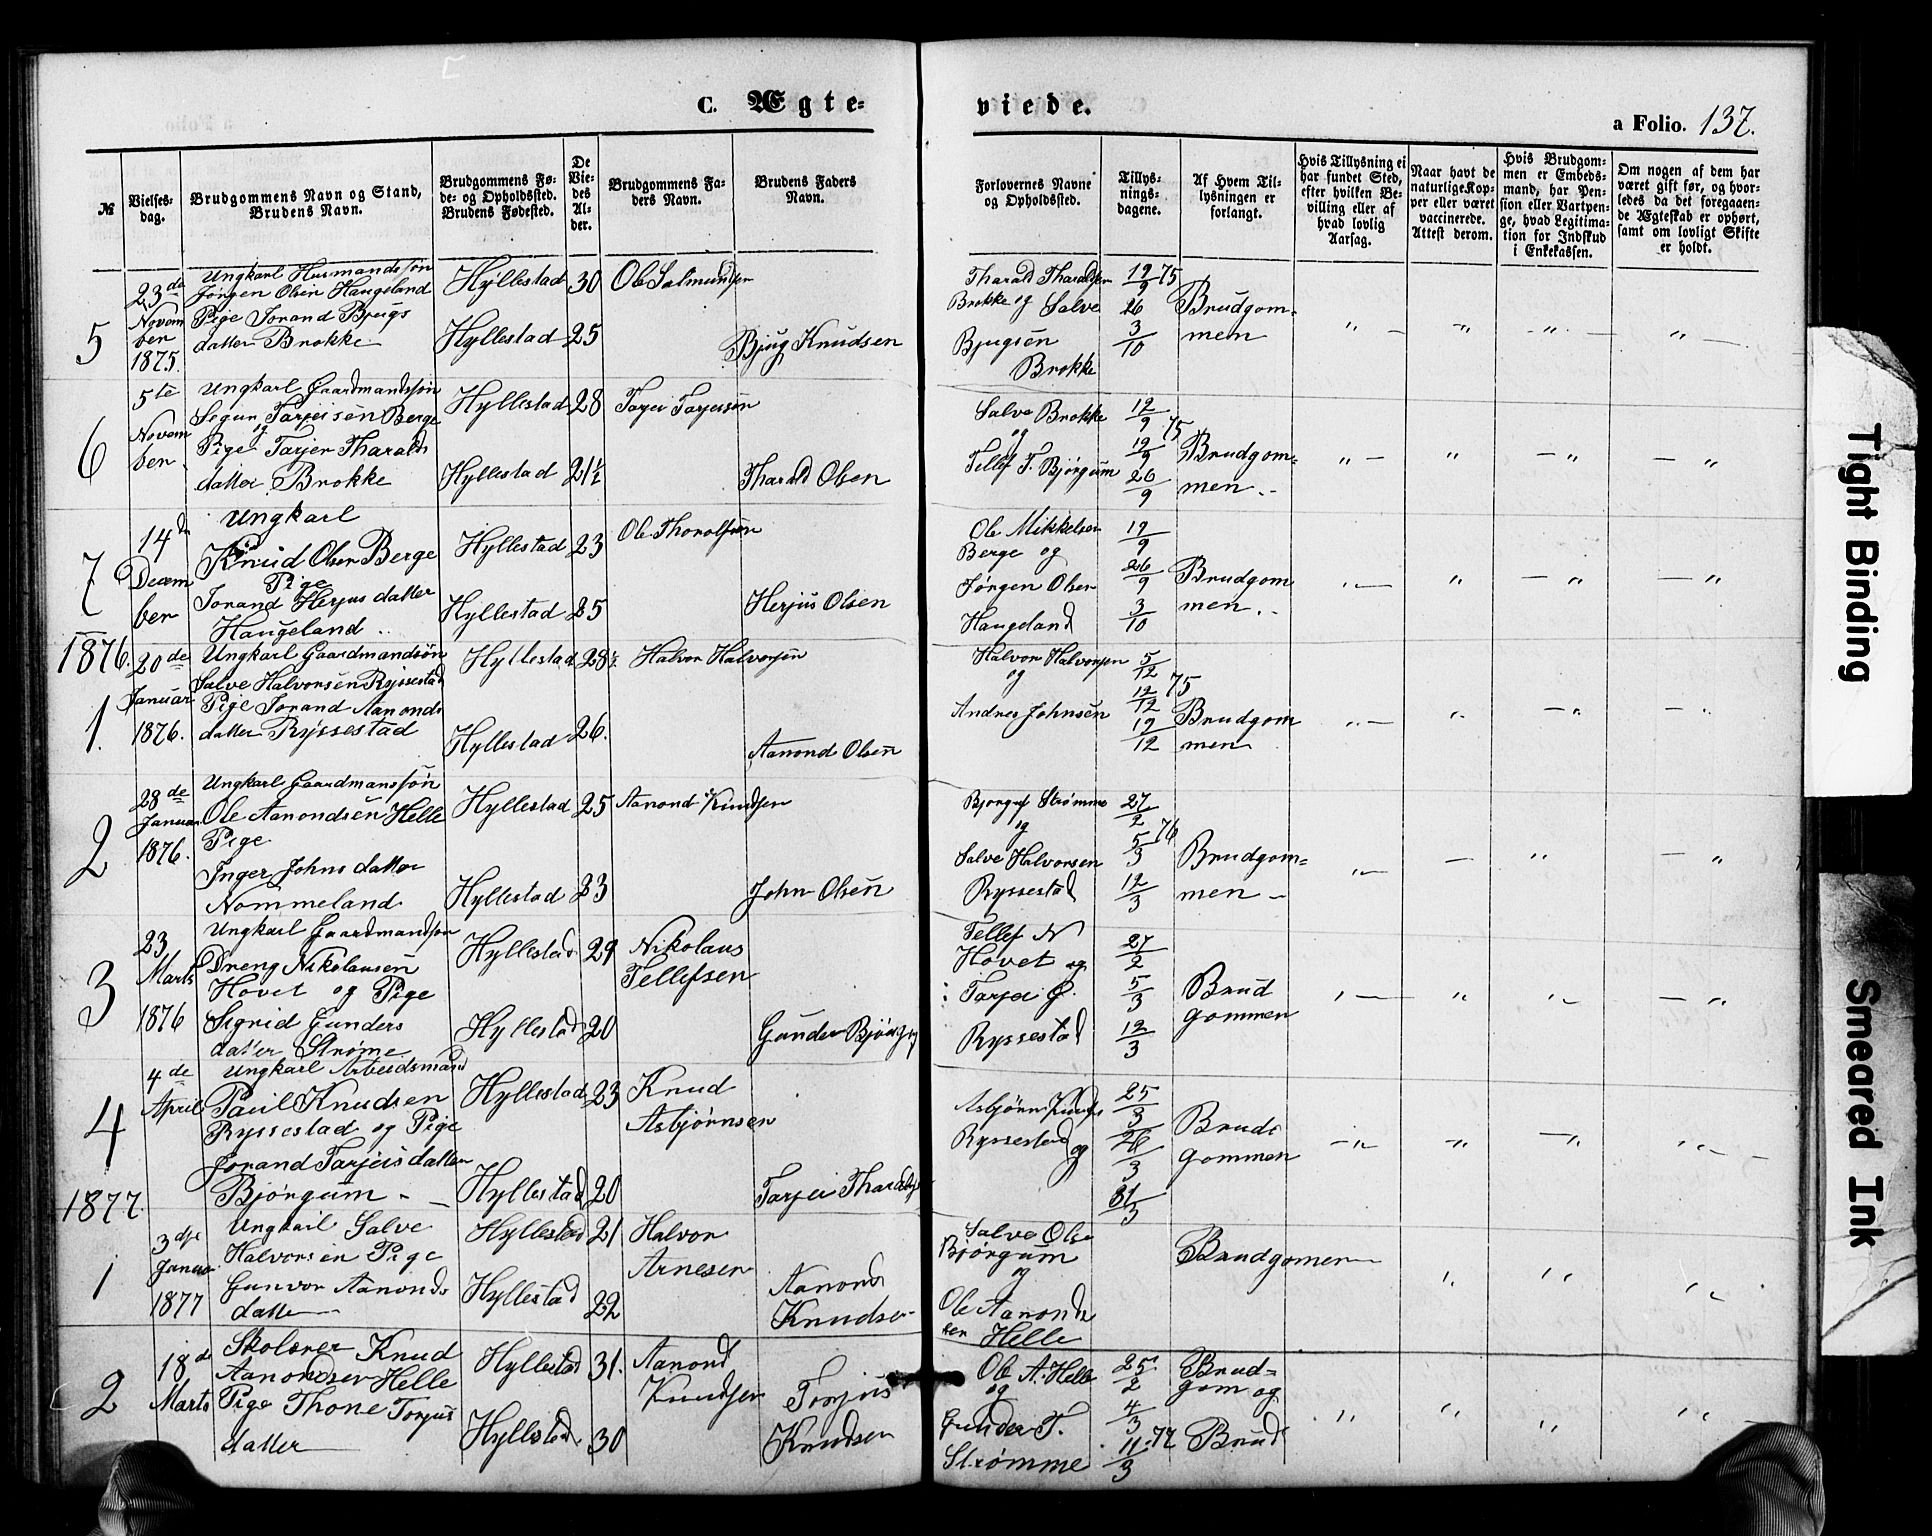 C. Ægte=
viede.
a Folio. 137.
№
Vielses-
dag.
Brudgommens Navn og Stand,
Brudens Navn.
Brudgommens Fø-
de- og Opholdssted.
Brudens Fødested.
De
Vie-
des
Al-
der.
Brudgommens Fa-
ders Navn.
Brudens Faders
Navn.
Forlovernes Navne
og Opholdssted.
Tillys-
nings-
dagene.
Af Hvem Til-
lysningen er
forlangt.
Hvis Tillysning ei
har fundet Sted,
efter hvilken Be-
villing eller af
hvad lovlig
Aarsag.
Naar havt de
naturlige Kop-
per eller været
vaccinerede.
Attest derom.
Hvis Brudgom-
men er Embeds-
mand, har Pen-
sion eller Vartpen-
ge, hvad Legitima-
tion for Indskud
i Enkekassen.
Om nogen af dem har
været gift før, og hvor-
ledes da det foregaaen-
de Ægteskab er ophørt,
samt om lovligt Skifte
er holdt.
5
23de
Novem
ber
1875.
Ungkarl Husmandssøn
Jørgen Olsen Haugeland
Pige Jorand Bjugs
datter Brokke
Hyllestad 30
Hyllestad 25
Ole Salmundsen
Bjug Knudsen
Tharald Tharaldsen
Brokke og Salve
Bjugsen
Brokke
19/9 75
26
3/10
Brudgom=
men
6
5te
Novem
ber
Ungkarl Gaardmandssøn
Segur Tarjeisen Berge
og
Pige Tarjer Tharalds
datter Brokke
Hyllestad 28
Hyllestad 21½
Tarjei Tarjeisen
Tharald Olsen
Salve Brokke
og
Tellef T. Bjørgum
12/9
19/9 75
26/9
Brudgom=
men.-
7
14de
Decem
ber
Ungkarl
Knud Olsen Berge
Pige
Jorand Herjus datter
Haugeland
Hyllestad 23
Hyllestad 25
Ole Thorolfsen
Herjus Olsen
Ole Mikkelsen
Berge og
Jørgen Olsen
Haugeland
19/9
26/9
3/10
Brudgom
men.
1876.
1.
20de
Januar
1876.
Ungkarl Gaardmandsøn
Salve Halvorsen Ryssestad
Pige Jorand Aanonds
datter Ryssestad
Hyllestad 28½
Hyllestad 26.
Halvor Halvorsen
Aanond Olsen
Halvor Halvorsen
og
Andres Johnsen
5/12
12/12 75
19/12
Brudgom
men
2
28de
Januar
1876.
Ungkarl Gaardmanssøn
Ole Aanondsen Helle
Pige
Inger Johns datter
Nommeland
Hyllestad 25
Hyllestad 23
Aanond Knudsen
John Olsen
Bjorguf Strømme
og
Salve Halvorsen
Ryssestad
27/2
5/3 76
12/3
Brudgom=
men -
3
23
Marts
1876
Ungkarl Gaardmandsøn
Dreng Nikolausen
Hovet og Pige
Sigrid Gunders
datter Strøme
Hyllestad 29
Hyllestad 20
Nikolaus
Tellefsen
Gunder
Tellef N
Hovet og
Tarjei G.
Ryssestad
27/2
5/3
12/3
Brud
gommen
4
4de
April
Ungkarl Arbeidsmand
Paul Knudsen
Ryssestad og Pige
Jorand Tarjeis datter
Bjørgum - -
Hyllestad 23
Hyllestad 20
Knud
Asbjørnsen
Tarjei Tharaldsen
Asbjørn Knuds
Ryssestad
og
25/3
26/3
31/3
Brud
gommen
1877.
1
3dje
Januar
1877
Ungkarl Salve
Halvorsen Pige
Gunvor Aanonds
datter
Hyllestad 21
Hyllestad 22
Halvor
Arnesen
Aanond
Knudsen
Salve Olsen
Bjørgum
og
Ole Aanond
sen Helle
Brudgomen
2
18de
Marts
Skolelærer Knud
Aanondsen Helle
Pige Thone Torjus
datter
Hyllestad 31.
Hyllestad 30
Aanond
Knudsen
Torjus
Knudsen
Ole A. Helle
og
Gunder T.
Strømme
25/2
4/3
11/3 77
Brud=
gom og
Brud
Tight Binding
Smeared Ink